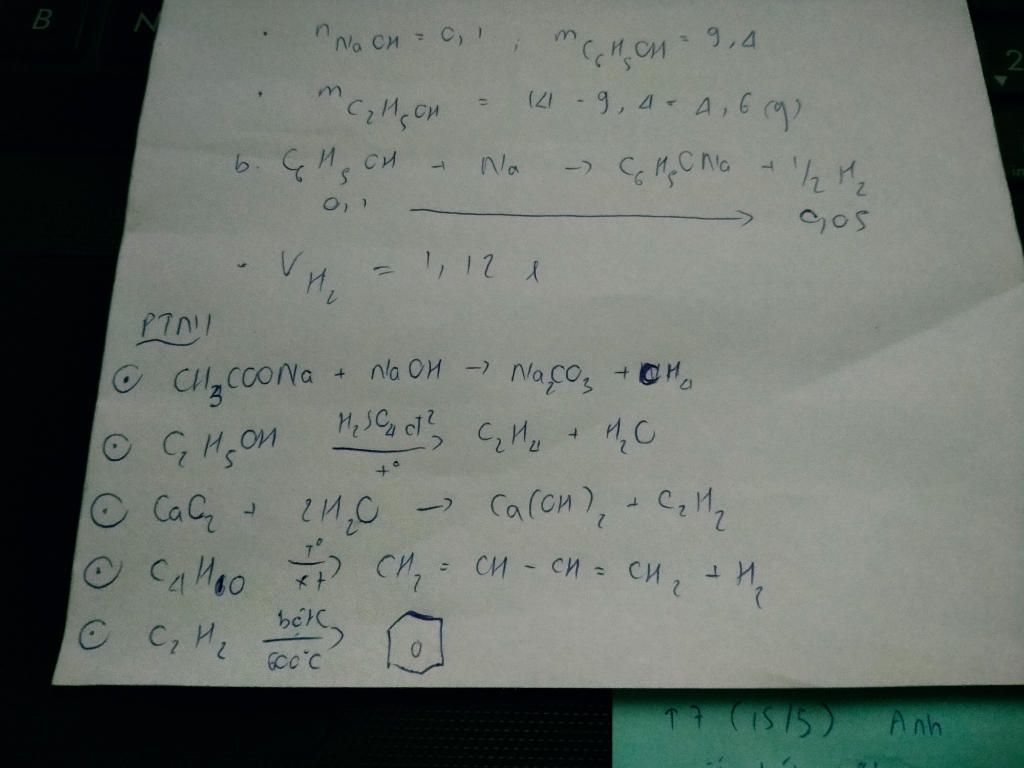 B N
. nNaOH = 0,1 ; mC6H5OH = 9,4
. mC2H5OH = 14 - 9,4 = 4,6 (g)
2
b. C6H5OH + Na → C6H5ONa + 1/2 H2
0,1 → 0,05
. VH2 = 1,12 l
PTN11
⊙ CH3COONa + NaOH → Na2CO3 + CH4
⊙ C2H5OH H2SO4 đ2 t° → C2H4 + H2O
⊙ CaC2 + 2H2O → Ca(OH)2 + C2H2
⊙ C4H10 t° xt → CH2 = CH - CH = CH2 + H2
⊙ C2H2 bột C 600°C →
↑7 (15/5) Anh